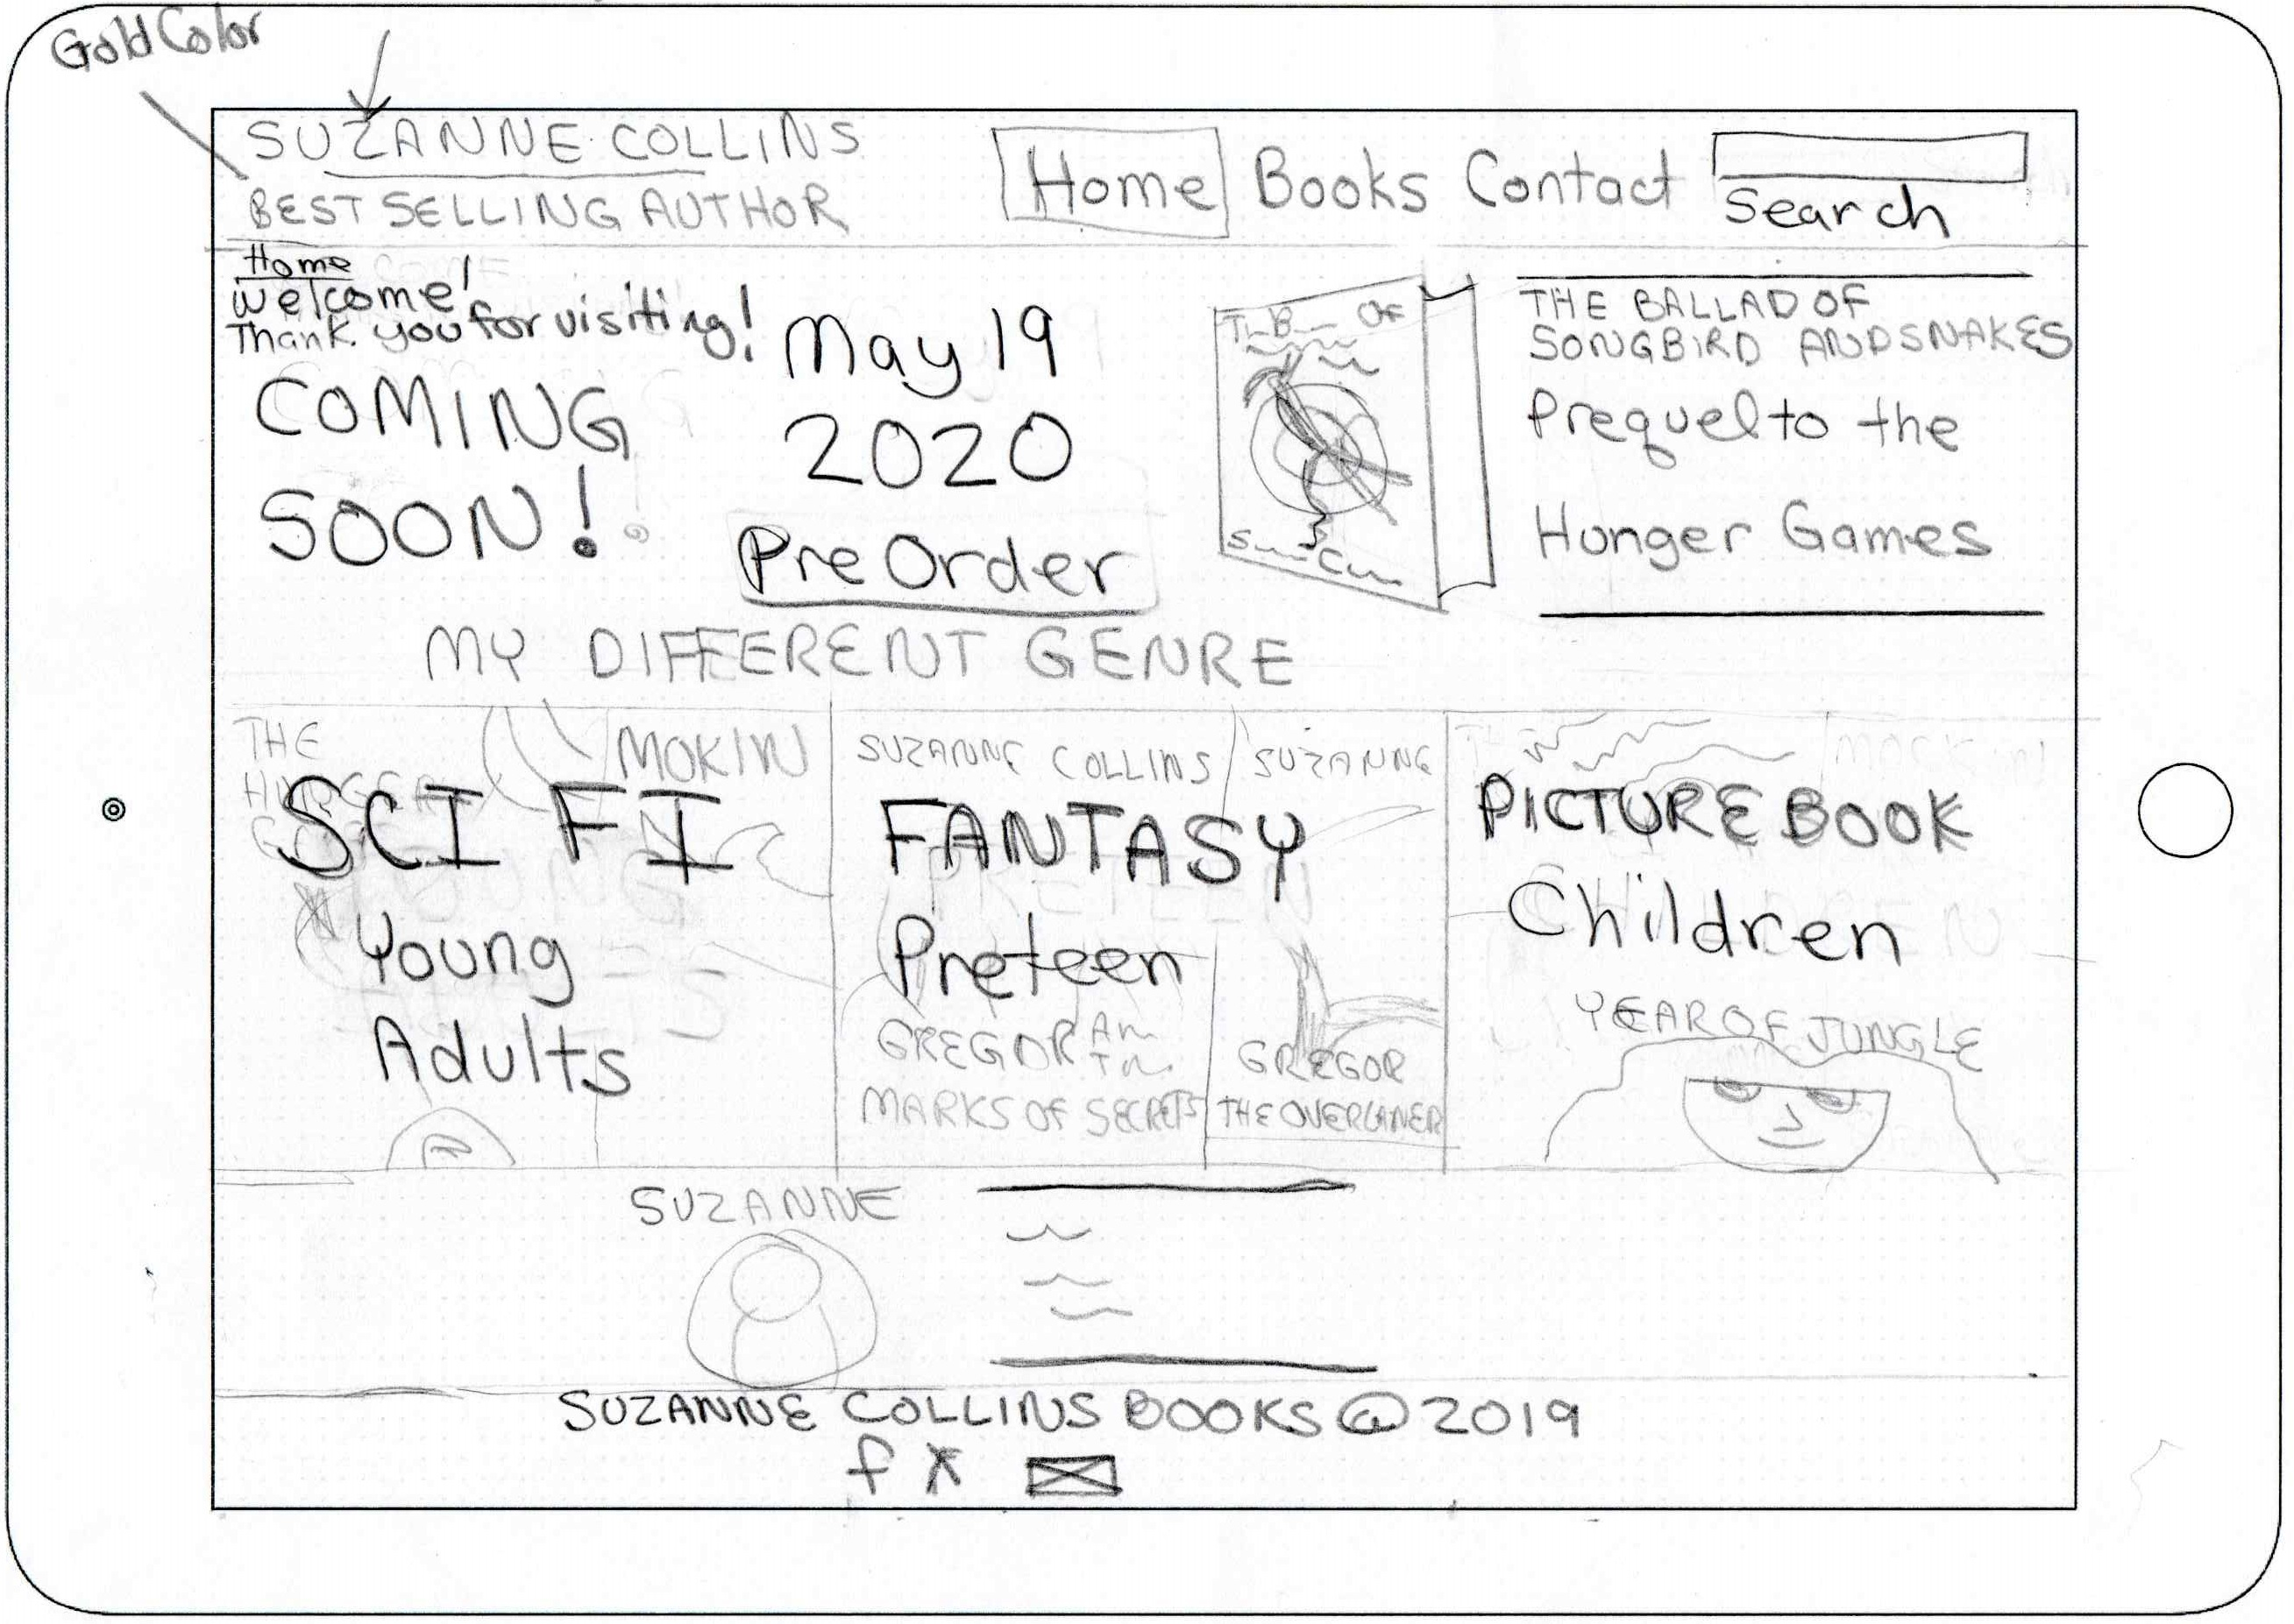 Gold Color
SUZANNE COLLINS
BEST SELLING AUTHOR
Home Books Contact
Search
Home
Welcome!
Thank you for visiting!
COMING
SOON!
May 19
2020
Pre Order
OF
THE BALLAD OF
SONGBIRD AND SNAKES
Prequel to the
Hunger Games
MY DIFFERENT GENRE
THE
HUNGER
MOKIN
SCI FI
Young
Adults
SUZANNE COLLINS
SUZANNE
FANTASY
Preteen
GREGOR
MARKS OF SECRETS
GREGOR
THE OVERLANER
MOCKIN
PICTURE BOOK
Children
YEAR OF JUNGLE
SUZANNE
SUZANNE COLLINS BOOKS @ 2019
f